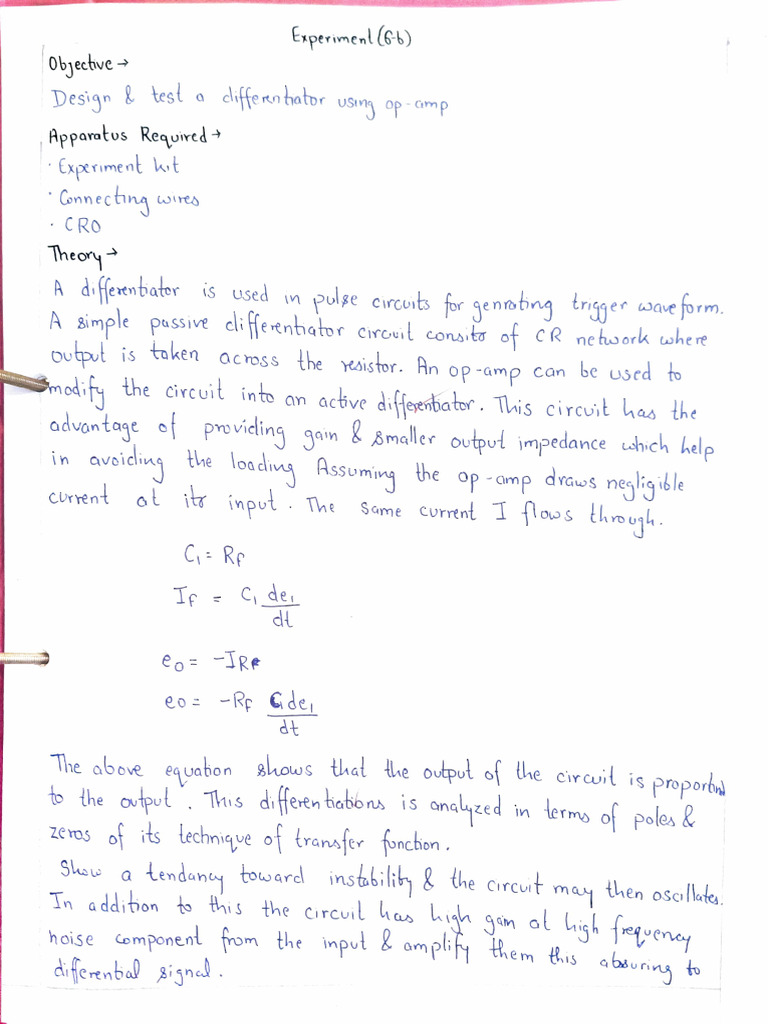 Experiment (6-b)
Objective →
Design & test a differentiator using op-amp
Apparatus Required →
· Experiment kit
· Connecting wires
· CRO
Theory →
A differentiator is used in pulse circuits for genrating trigger waveform.
A simple passive differentiator circuit consits of CR network where
output is taken across the resistor. An op-amp can be used to
modify the circuit into an active differentiator. This circuit has the
advantage of providing gain & smaller output impedance which help
in avoiding the loading Assuming the op-amp draws negligible
current at its input. The same current I flows through.
C₁ = Rf
If = C₁ de₁/dt
eo = -IRf
eo = -Rf C₁de₁/dt
The above equation shows that the output of the circuit is proportnal
to the output. This differentiations is analyzed in terms of poles &
zeros of its technique of transfer function.
Show a tendancy toward instability & the circuit may then oscillates.
In addition to this the circuit has high gain at high frequency
noise component from the input & amplify them this absuring to
differential signal.